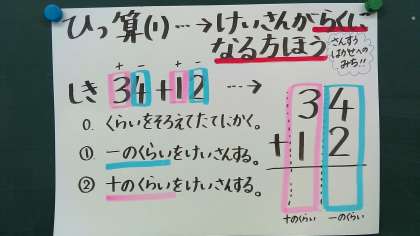 ひっ算(1)…→けいさんがらくに
なる方ほう
さんすう
はかせへの
みち!!
+ - + -
しき 34+12 …→
34
+12
0. くらいをそろえてたてにかく。
① 一のくらいをけいさんする。
② 十のくらいをけいさんする。
十のくらい 一のくらい